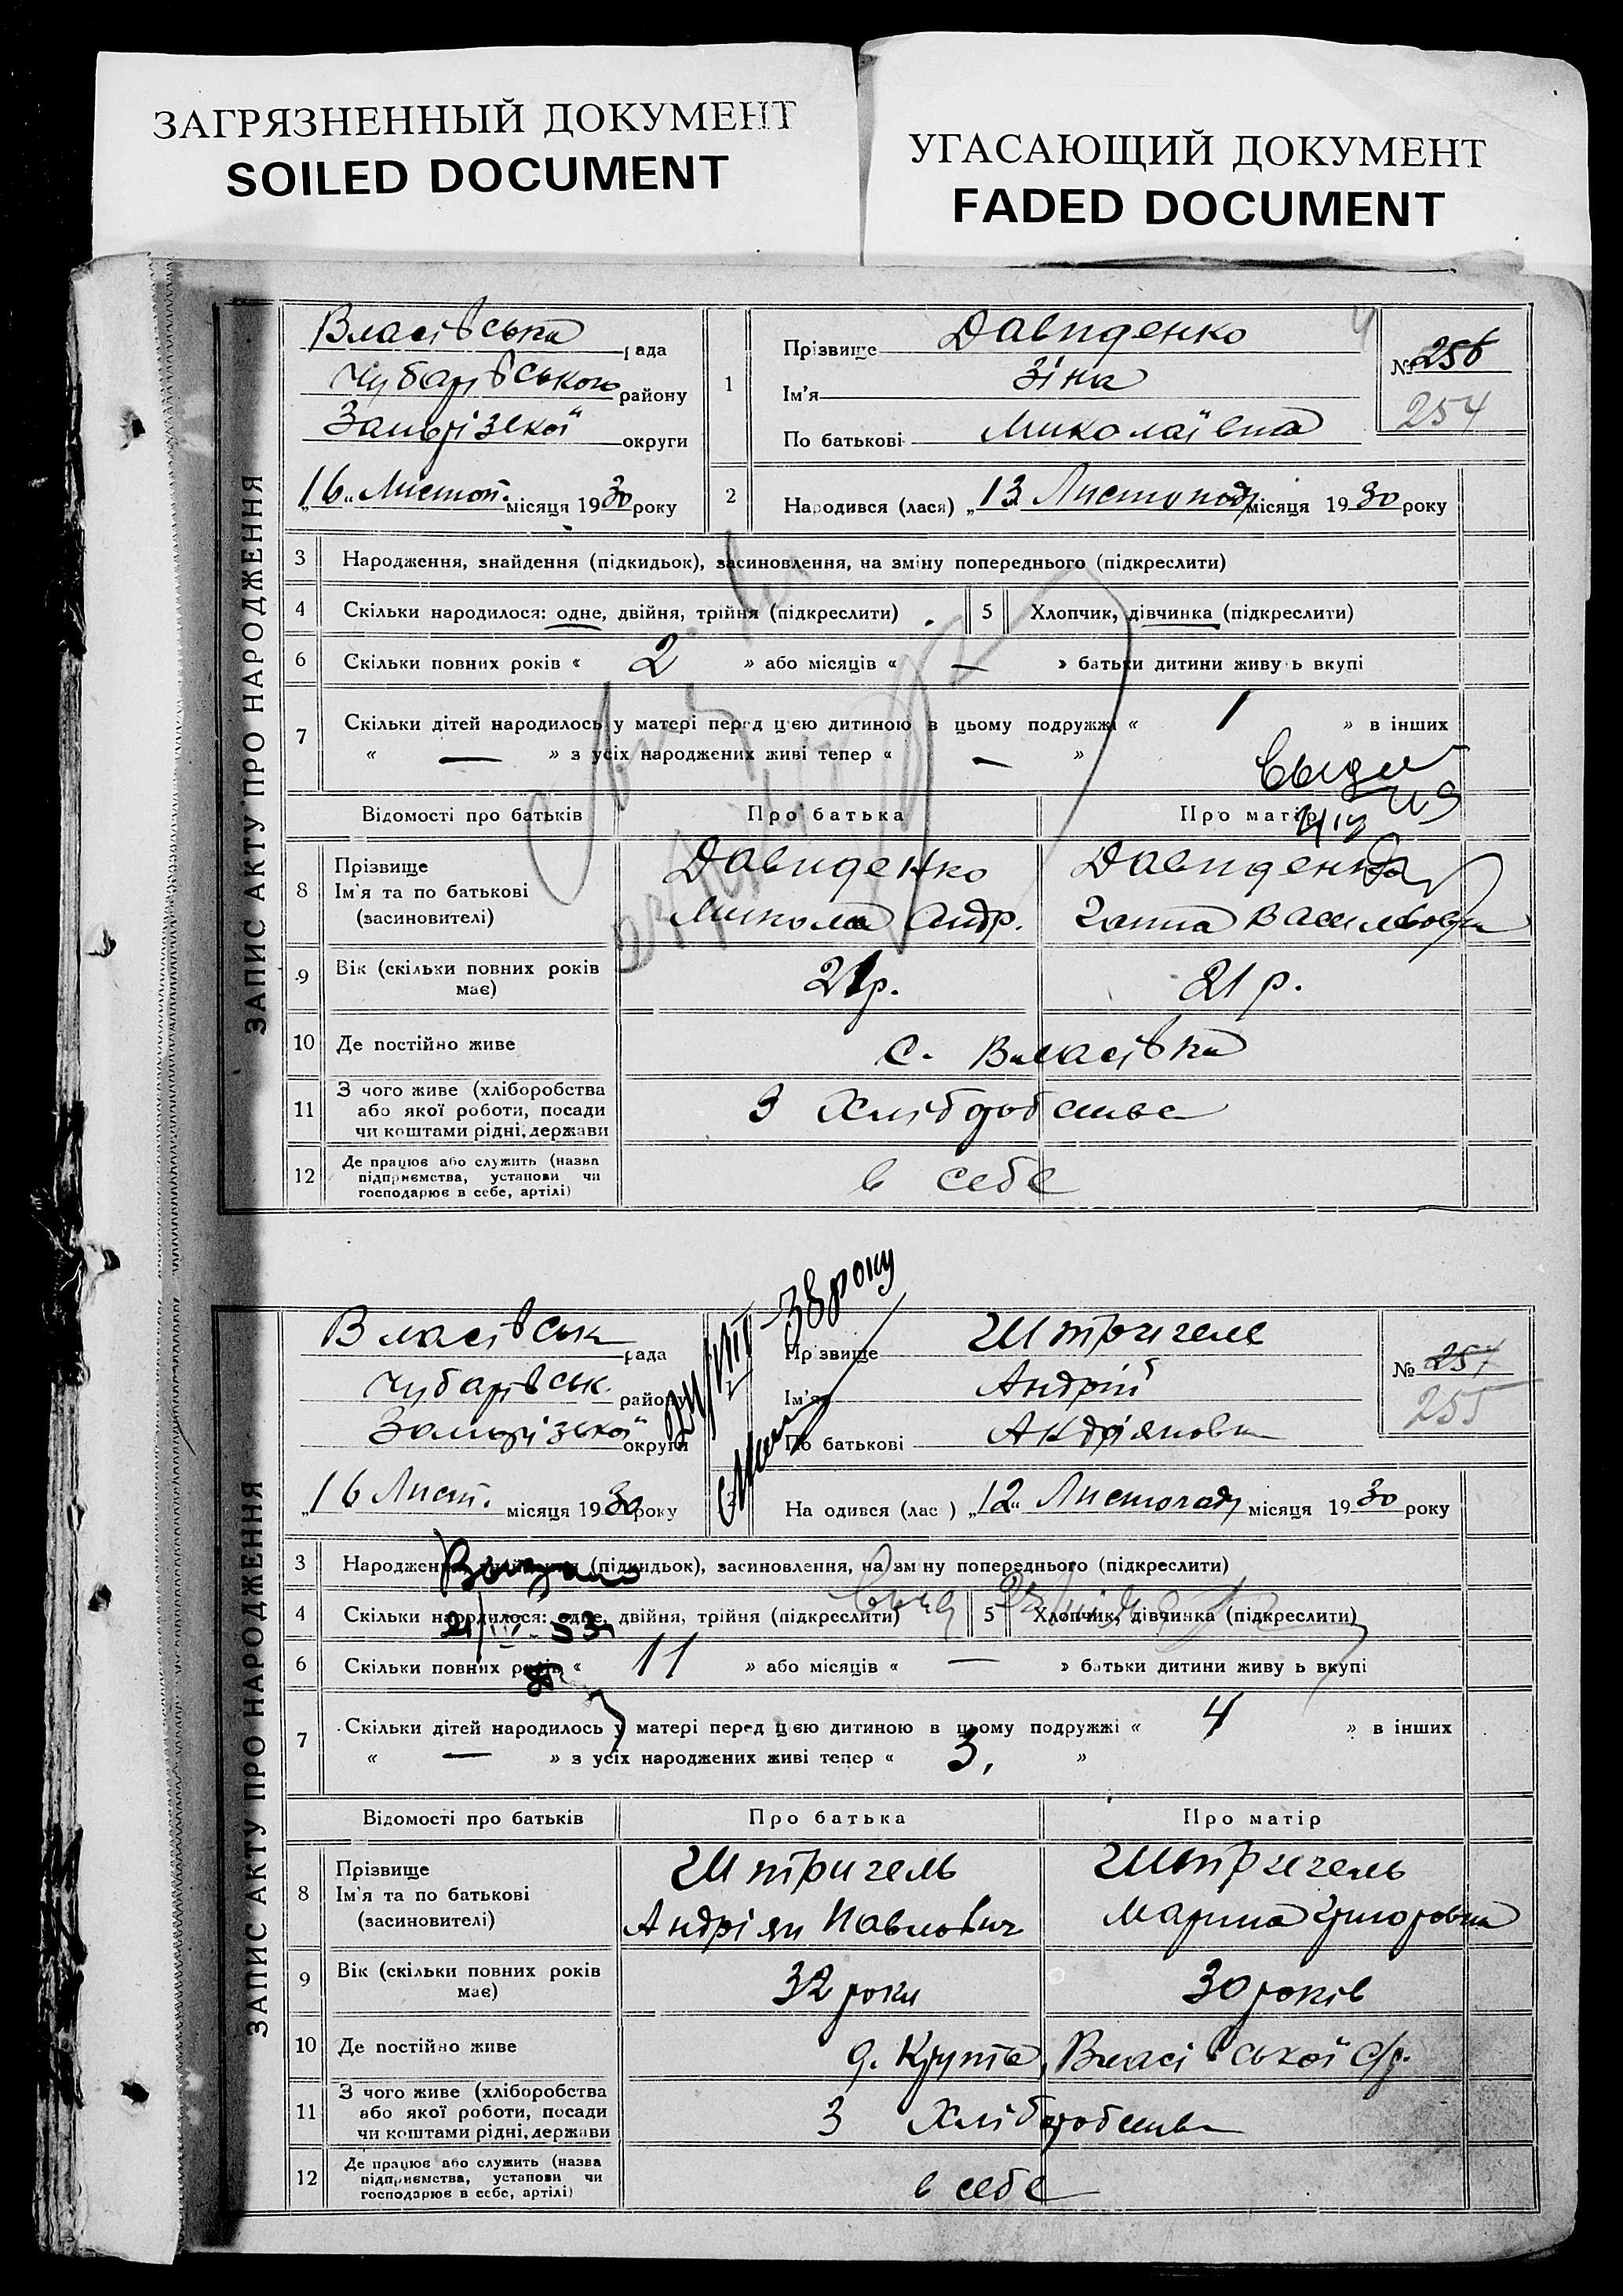 ЗАГРЯЗНЕННЫЙ ДОКУМЕНТ
SOILED DOCUMENT
УГАСАЮЩИЙ ДОКУМЕНТ
FADED DOCUMENT
ЗАПИС АКТУ ПРО НАРОДЖЕННЯ
Власівська рада
Чубарівського району
Запорізької округи
„16„ Листоп. місяця 1930 року
1
Прізвище Давиденко
Ім'я Зіна
По батькові Миколаївна
№ 256
254
2 Народився (лася) „13 Листопаду місяця 1930 року
3 Народження, знайдення (підкидьок), засиновлення, на зміну попереднього (підкреслити)
4 Скільки народилося: одне, двійня, трійня (підкреслити)
5 Хлопчик, дівчинка (підкреслити)
6 Скільки повних років « 2 » або місяців « — » батьки дитини живуть вкупі
7 Скільки дітей народилось у матері перед цією дитиною в цьому подружжі « 1 » в інших
« — » з усіх народжених живі тепер « — »
Відомості про батьків Про батька Про матір
8 Прізвище
Ім'я та по батькові
(засиновителі)
Давиденко
Микола Андр.
Давиденко
Ганна Васильовна
9 Вік (скільки повних років має) 21р. 21 р.
10 Де постійно живе с. Власівка
11 З чого живе (хліборобства
або якої роботи, посади
чи коштами рідні, держави
З Хліборобства
12 Де працює або служить (назва
підприємства, установи чи
господарює в себе, артілі)
в себе
ЗАПИС АКТУ ПРО НАРОДЖЕННЯ
Власівськ рада
Чубарівськ. району
Запорізької округи
„16 Лист. місяця 1930 року
Прізвище Штригель
Ім'я Андрій
По батькові Андріянович
№ 257
255
На одився (лас ) „12„ Листопаду місяця 1930 року
3 Народження, знайдення (підкидьок), засиновлення, на зм ну попереднього (підкреслити)
4 Скільки народилося: одне, двійня, трійня (підкреслити)
5 Хлопчик, дівчинка (підкреслити)
6 Скільки повних років « 11 » або місяців « — » батьки дитини живу ь вкупі
7 Скільки дітей народилось у матері перед цією дитиною в цьому подружжі « 4 » в інших
« — » з усіх народжених живі тепер « 3, »
Відомості про батьків Про батька Про матір
8 Прізвище
Ім'я та по батькові
(засиновителі)
Штригель
Андріян Павлович
Штригель
Марина Григоровна
9 Вік (скільки повних років має) 32 роки 30 років
10 Де постійно живе д. Крута, Власівської с/р.
11 З чого живе (хліборобства
або якої роботи, посади
чи коштами рідні, держави
З Хліборобства
12 Де працює або служить (назва
підприємства, установи чи
господарює в себе, артілі)
в себе